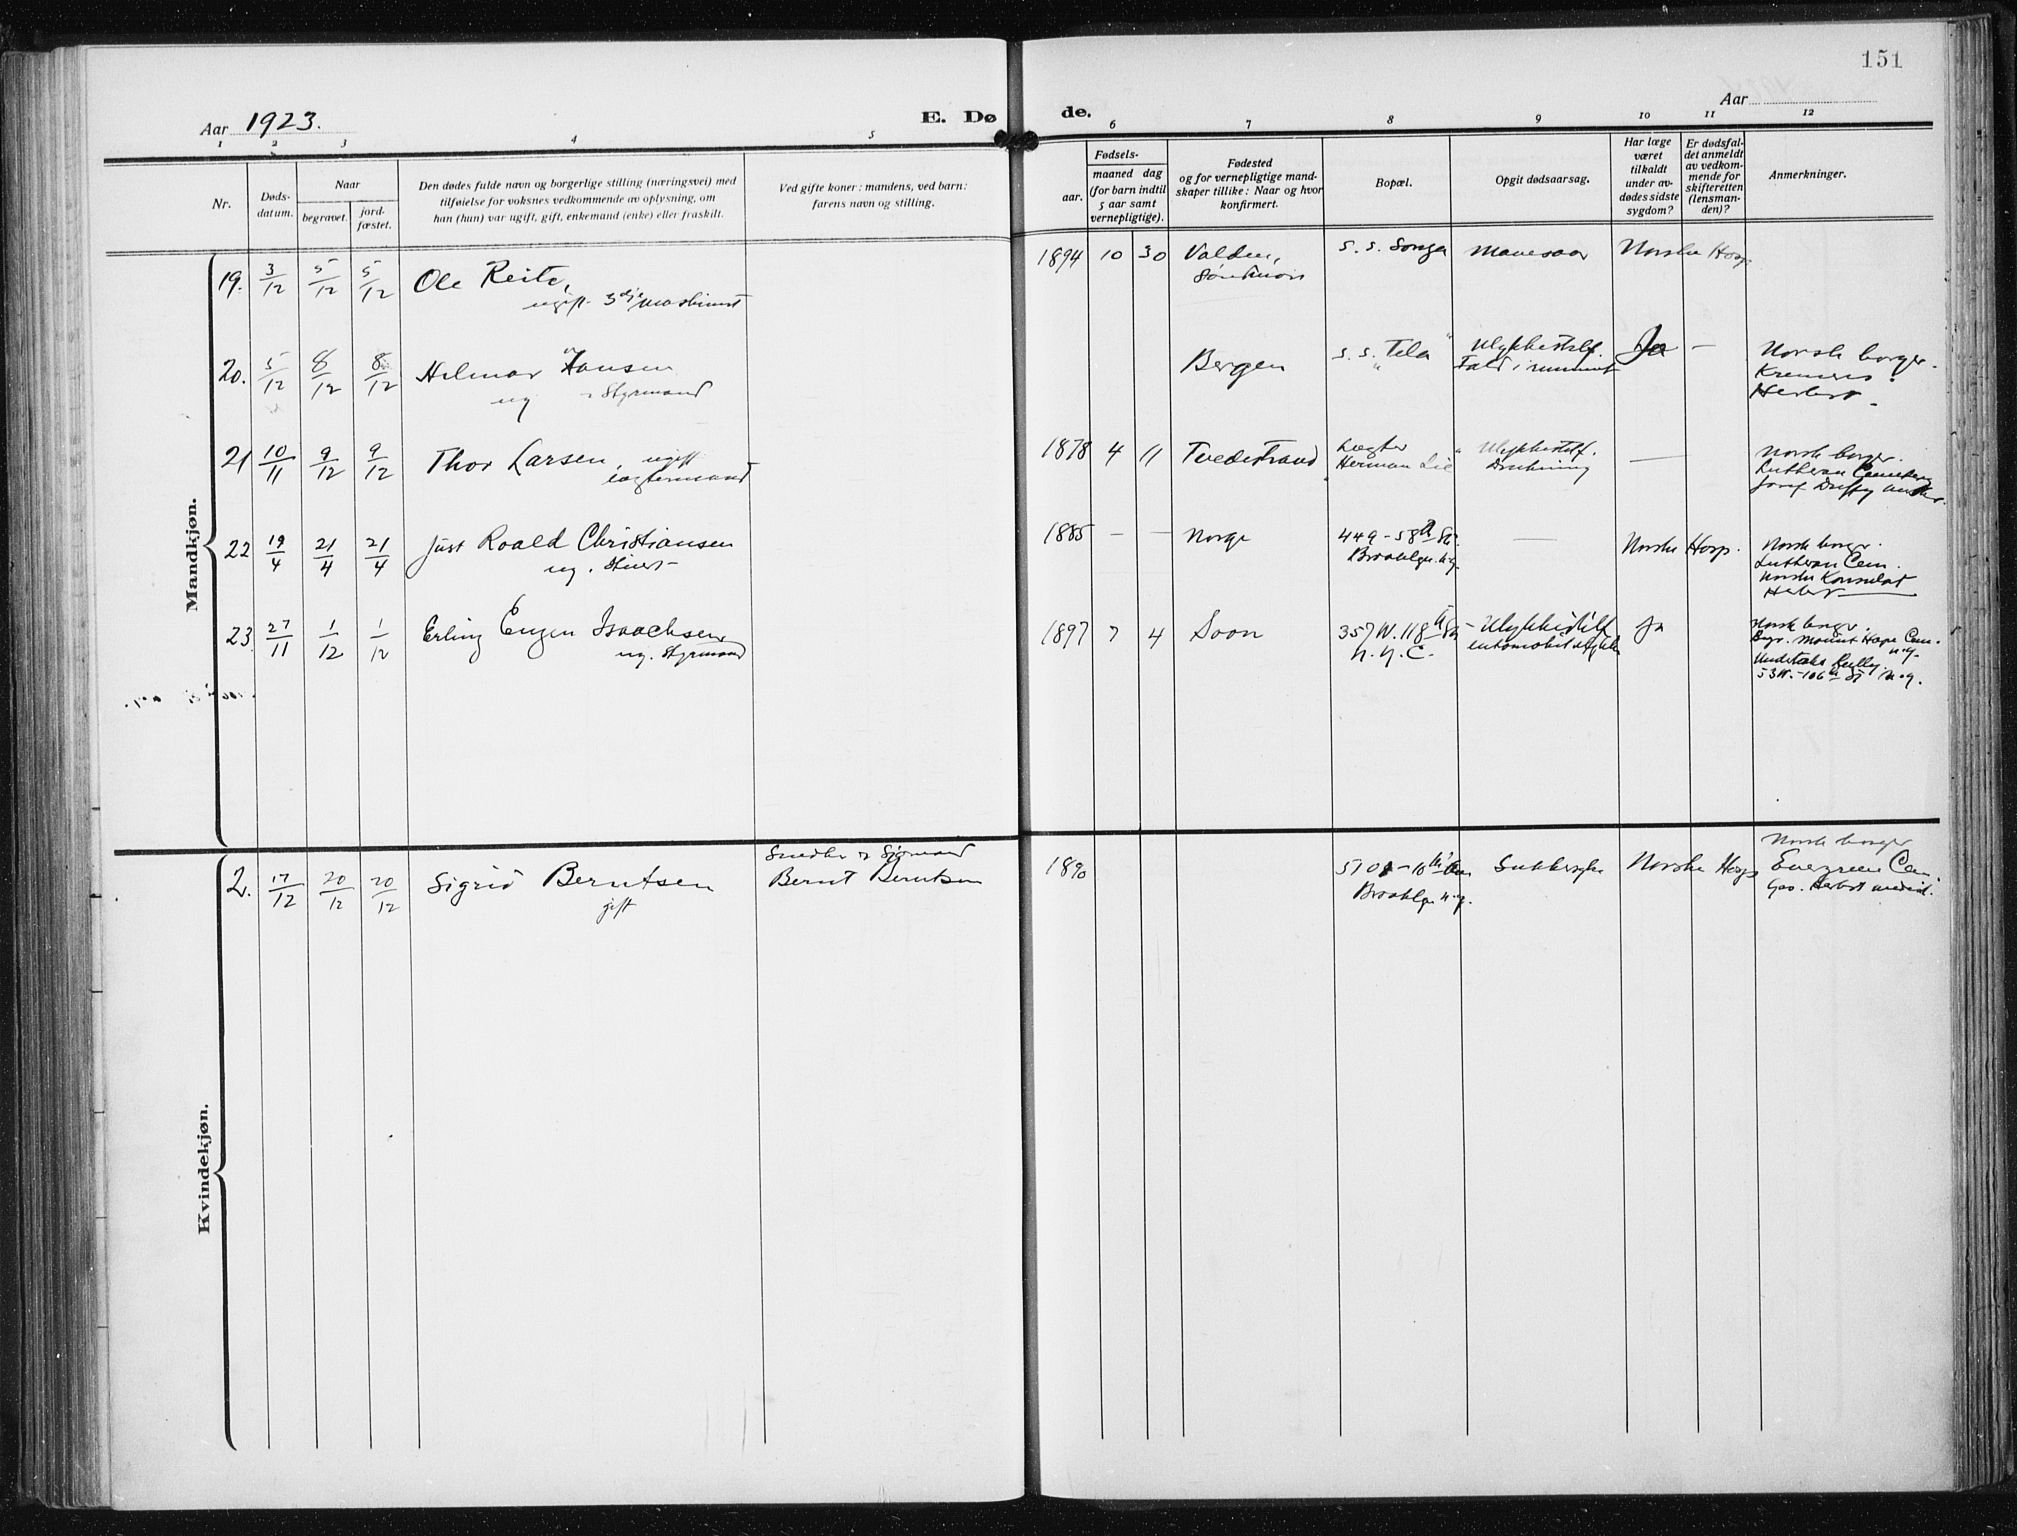 151
Aar 1923.
E. Dø
de.
Aar
1 2 3 4 5
6 7 8 9 10 11 12
Nr.
Døds-
datum.
Naar
begravet.
jord-
fæstet.
Den dødes fulde navn og borgerlige stilling (næringsvei) med
tilføielse for voksnes vedkommende av oplysning, om
han (hun) var ugift, gift, enkemand (enke) eller fraskilt.
Ved gifte koner: mandens, ved barn:
farens navn og stilling.
Fødsels-
aar.
maaned dag
(for barn indtil
5 aar samt
vernepligtige).
Fødested
og for vernepligtige mand-
skaper tillike: Naar og hvor
konfirmert.
Bopæl.
Opgit dødsaarsag.
Har læge
været
tilkaldt
under av-
dødes sidste
sygdom?
Er dødsfal-
det anmeldt
av vedkom-
mende for
skifteretten
(lensman-
den)?
Anmerkninger.
Mandkjøn.
19. 3/12 5/12 5/12 Ole Reite,
ugift. 3dje maskinist
1894 10 30 Valden, S.S. Songa Mavesaar Norske Hosp.
20. 5/12 8/12 8/12 Hilmar Hansen
ug Styrmand
Bergen S.S. "Tela" Ulykkestilf. Ja — Norsk borger.
Fald i rummet
Herbst
21 10/11 9/12 9/12 Thor Larsen, ugift
lægtermand
1878 4 11 Tvedestrand Lægter Ulykkestilf. — Norsk borger.
Herman Lie Drukning Lutheran Cemetery
22 19/4 21/4 21/4 Just Roald Christiansen
ug.
1885 — — Norge 449-58th St. — Norske Hosp. Norsk borger.
Brooklyn. N.y. Lutheran Cem.
Norske Konsulat
Herbst
23. 27/11 1/12 1/12 Erling Eugen Isaachsen
ug. Styrmand
1897 7 4 Soon 357 W. 118th St. Ulykkestilf. Ja Norsk borger.
N.Y.C. automobilulykke Begr. Mount Hope Cem.
N.y.
53 W. - 106th St. N.y.
Kvindekjøn.
2. 17/12 20/12 20/12 Sigrid Berntsen
gift
Snedker
Bernt Berntsen
1890 Brooklyn N.y. Sukkersyke Norske Hosp Norsk borger
Evergreen Cem.
Geo. Herbst